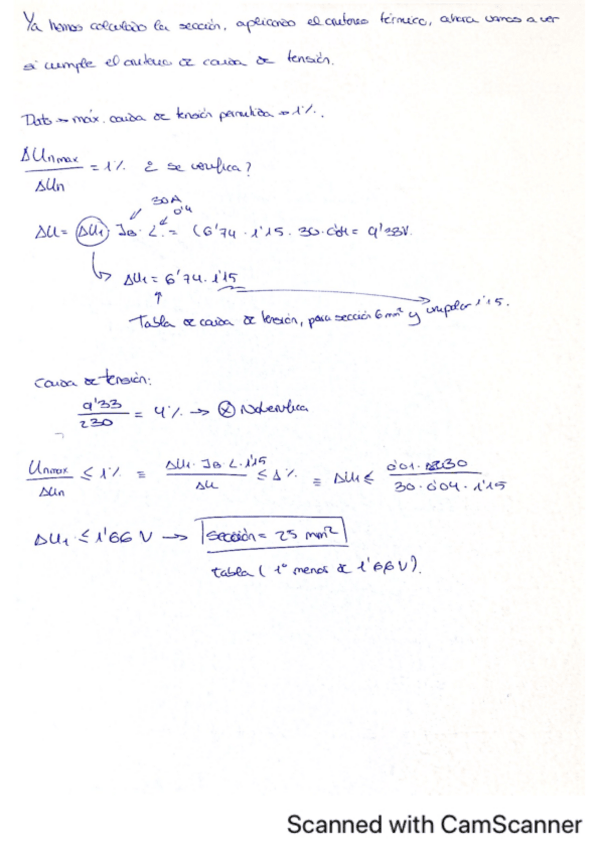 Ya hemos calculado la sección, aplicando el criterio térmico, ahora vamos a ver
si cumple el criterio de caída de tensión.
Dato → máx. caída de tensión permitida → 1%.
ΔUnmax / ΔUn = 1% ¿ se verifica?
30A
0'4
ΔU = ΔU1 · JB · L = (6'74 · 1'15 · 30 · 0'04 = 9'33V.
ΔU1 = 6'74 · 1'15
Tabla de caída de tensión, para sección 6 mm² y unipolar 1'15.
Caída de tensión:
9'33 / 230 = 4% → ⊗ No verifica
Unmax / ΔUn ≤ 1% ≡ ΔU1 · JB · L · 1'15 / ΔU ≤ 1% ≡ ΔU1 ≤ 0'01 · 230 / 30 · 0'04 · 1'15
ΔU1 ≤ 1'66 V → sección = 25 mm²
tabla ( 1º menos de 1'66V).
Scanned with CamScanner